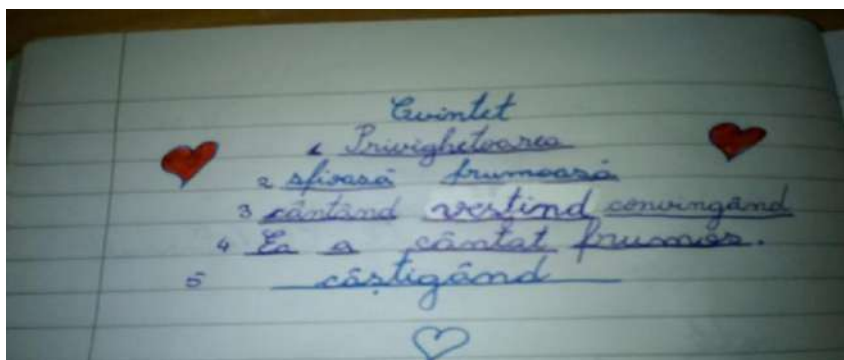 Cvintet
1 Privighetoarea
2 sfioasă frumoasă
3 cântând vestind convingând
4 Ea a cântat frumos.
5 câștigând